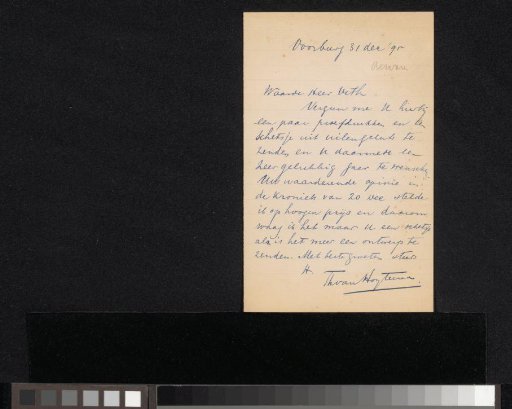 Voorburg 31 dec '9
Waarde Heer Veth
Vergun me U hierbij
een paar proefdrukken en een
schetsje uit uilengeluk te
zenden en U daarmede een
heer gelukkig Jaar te wenschen
Uw waardeerende opinie in
de Kroniek van 20 Dec stelde
ik op hoogen prijs en daarom
waag ik het maar U een schetsje
al is het meer een ontwerp te
zenden. Met beste groeten
Th van Hoytema.